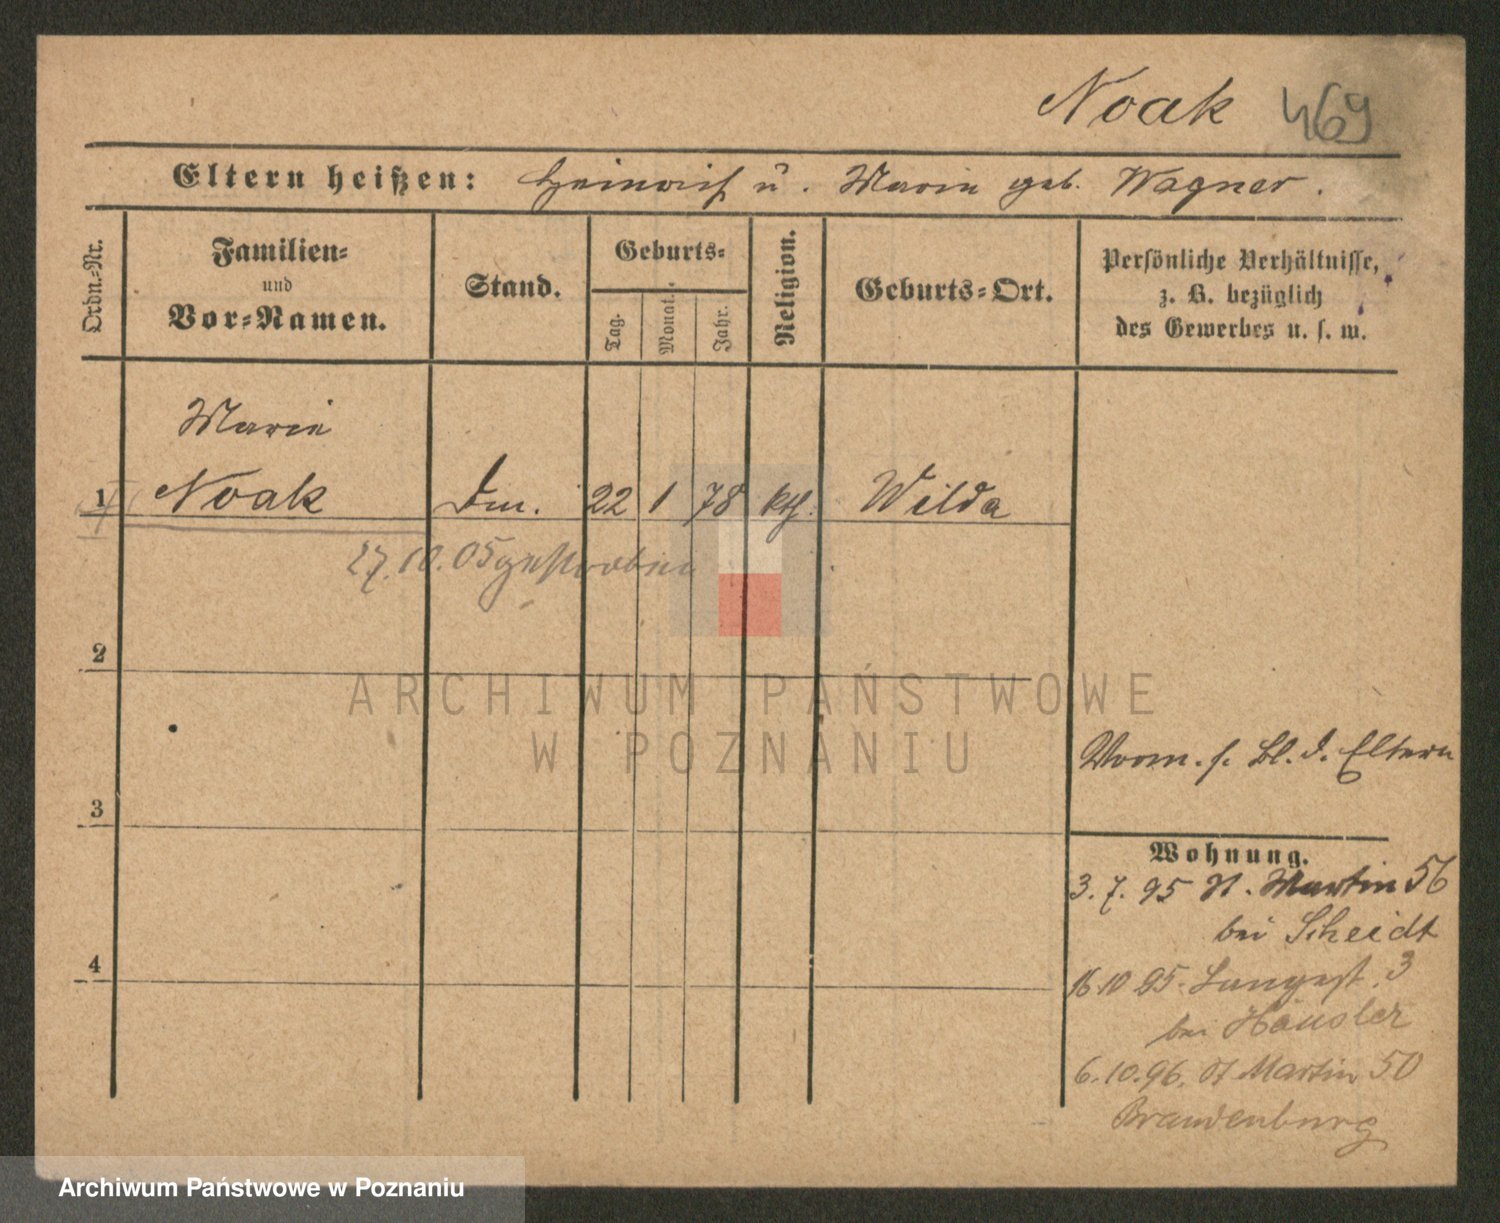 Noak 469
Eltern heißen: Heinrich u. Marie geb. Wagner.
Ordn.-Nr.
Familien-
und
Vor-Namen.
Stand.
Geburts-
Tag.
Monat.
Jahr.
Religion.
Geburts-Ort.
Persönliche Verhältnisse,
z. B. bezüglich
des Gewerbes u. s. w.
Marie
1 Noak Dm. 22 1 78 kth. Wilda
27.10.05 gestorben
2
ARCHIWUM PAŃSTWOWE
W POZNANIU
Vorm. s. Bl. d. Eltern
3
Wohnung.
3.7.95 St. Martin 56
bei Scheidt
4
16.10 95. Langest. 3
bei Häusler
6.10.96. St Martin 50
Brandenburg
Archiwum Państwowe w Poznaniu